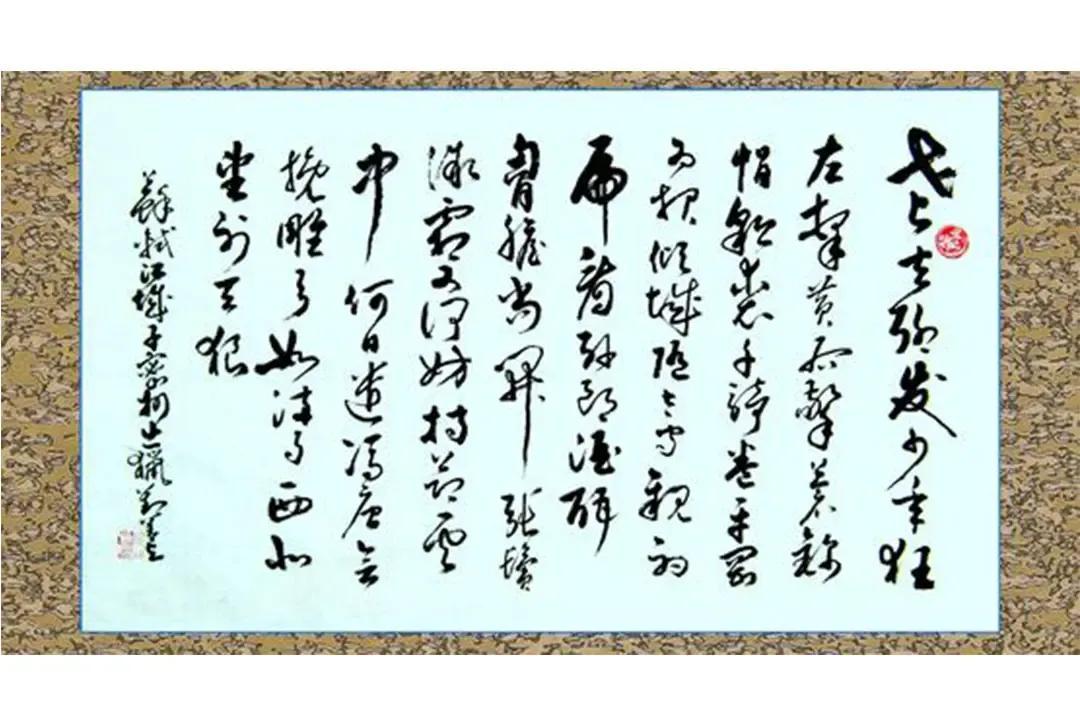 老夫聊发少年狂
左牽黄右擎蒼錦
帽貂裘千騎卷平冈
为报傾城随太守親射
虎看孙郎酒酣
胸膽尚開張鬢
微霜又何妨持节雲
中何日遣馮唐会
挽雕弓如满月西北
望射天狼
蘇軾江城子密州出獵